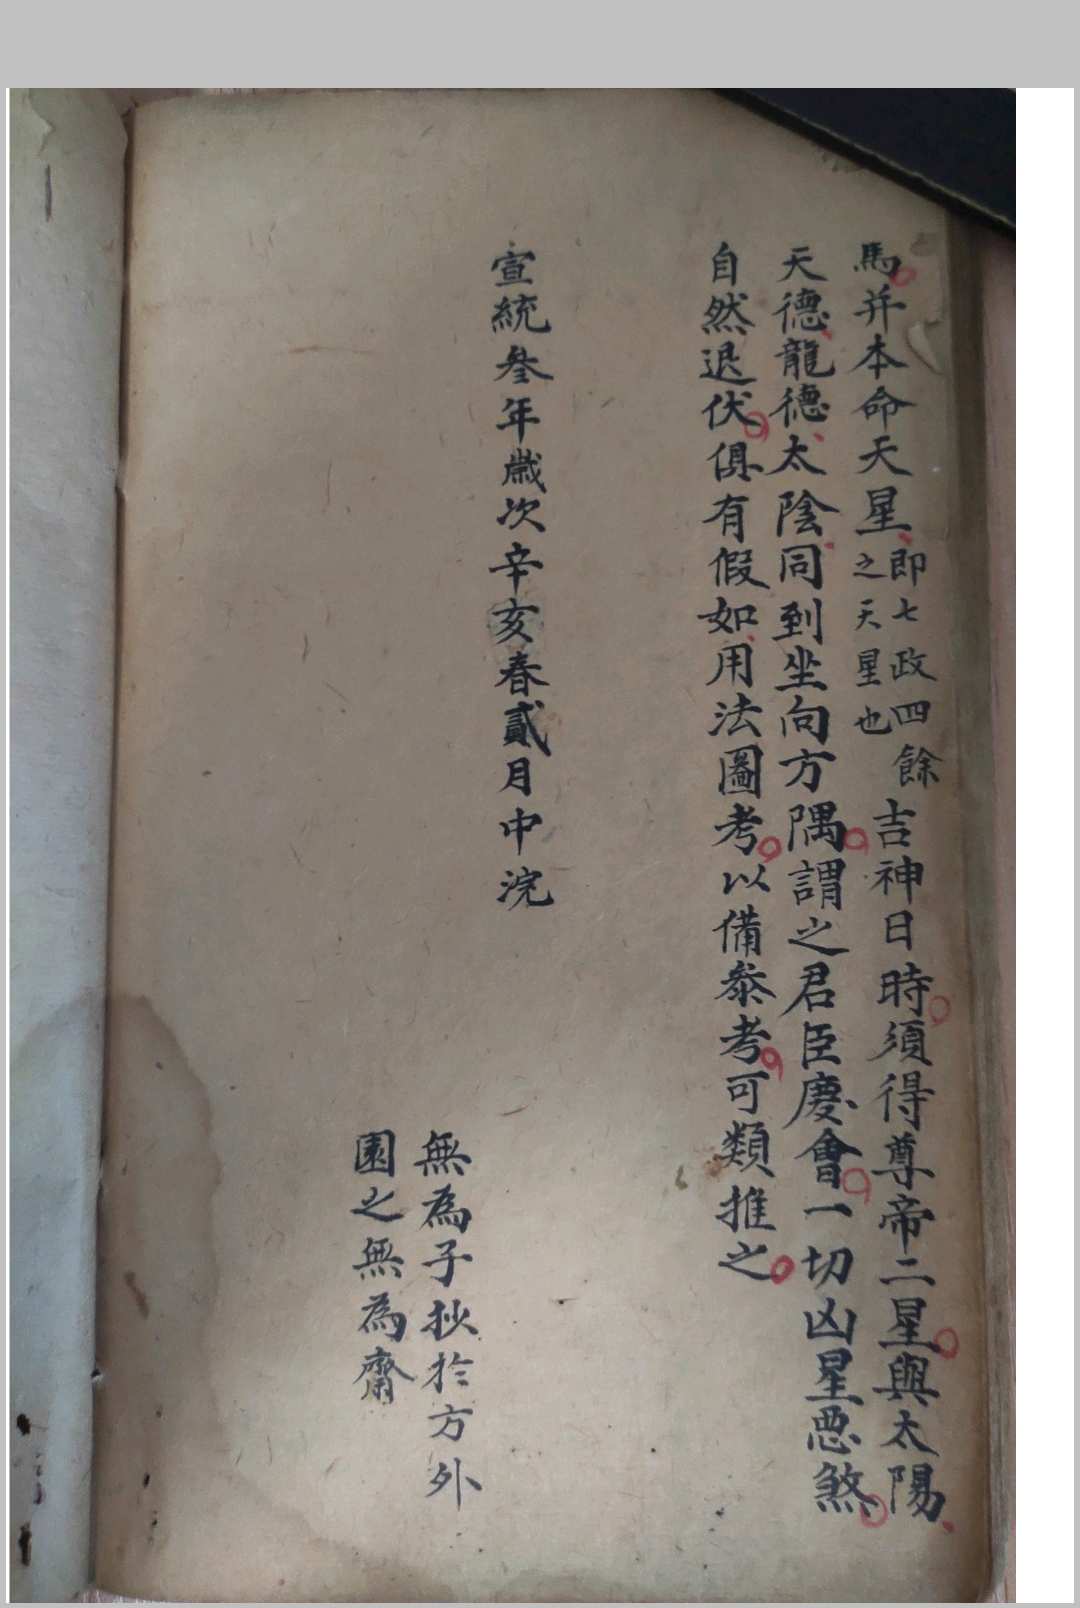 馬并本命天星即七政四餘之天星也吉神日時須得尊帝二星與太陽
天德龍德太陰同到坐向方隅謂之君臣慶會一切凶星惡煞
自然退伏俱有假如用法圖考以備叅考可類推之
宣統叄年歲次辛亥春貳月中浣
無為子抄於方外
園之無為齋